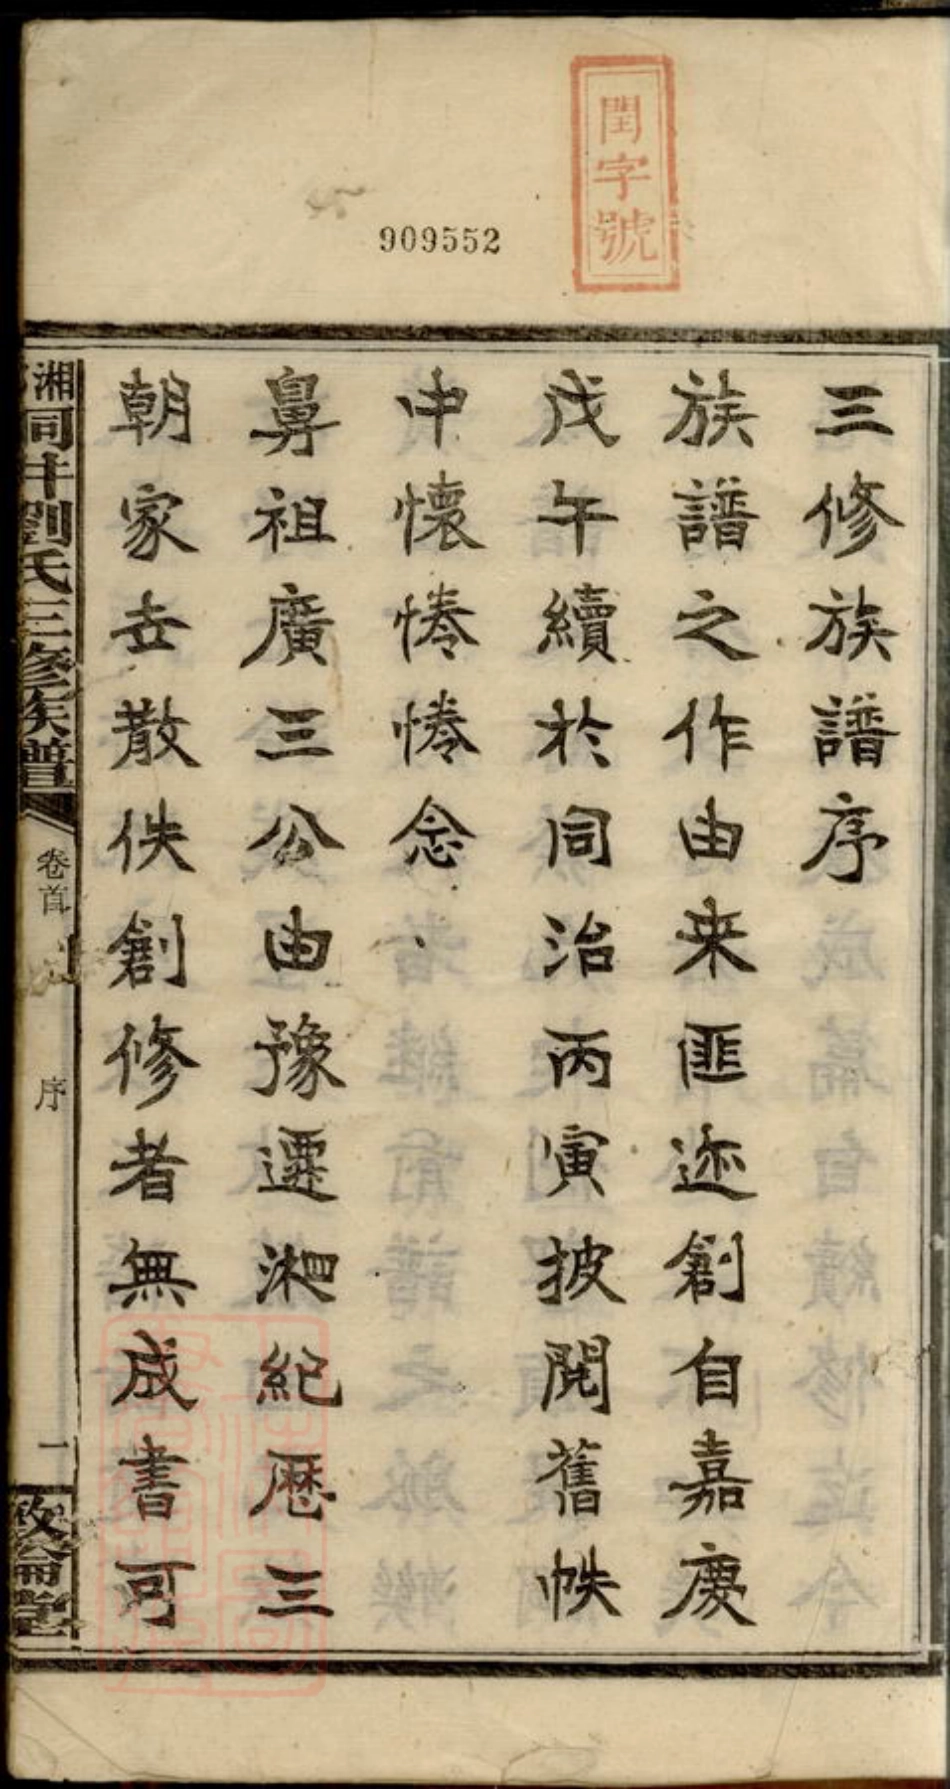 閏字號
909552
三修族譜序
族譜之作由来匪迩創自嘉慶
戊午續於同治丙寅披閱舊帙
中懷惓惓念
鼻祖廣三公由豫遷湘紀歷三
朝家乘散佚創修者無成書可
湘同井劉氏三修族譜
卷首
序
一
敦倫堂